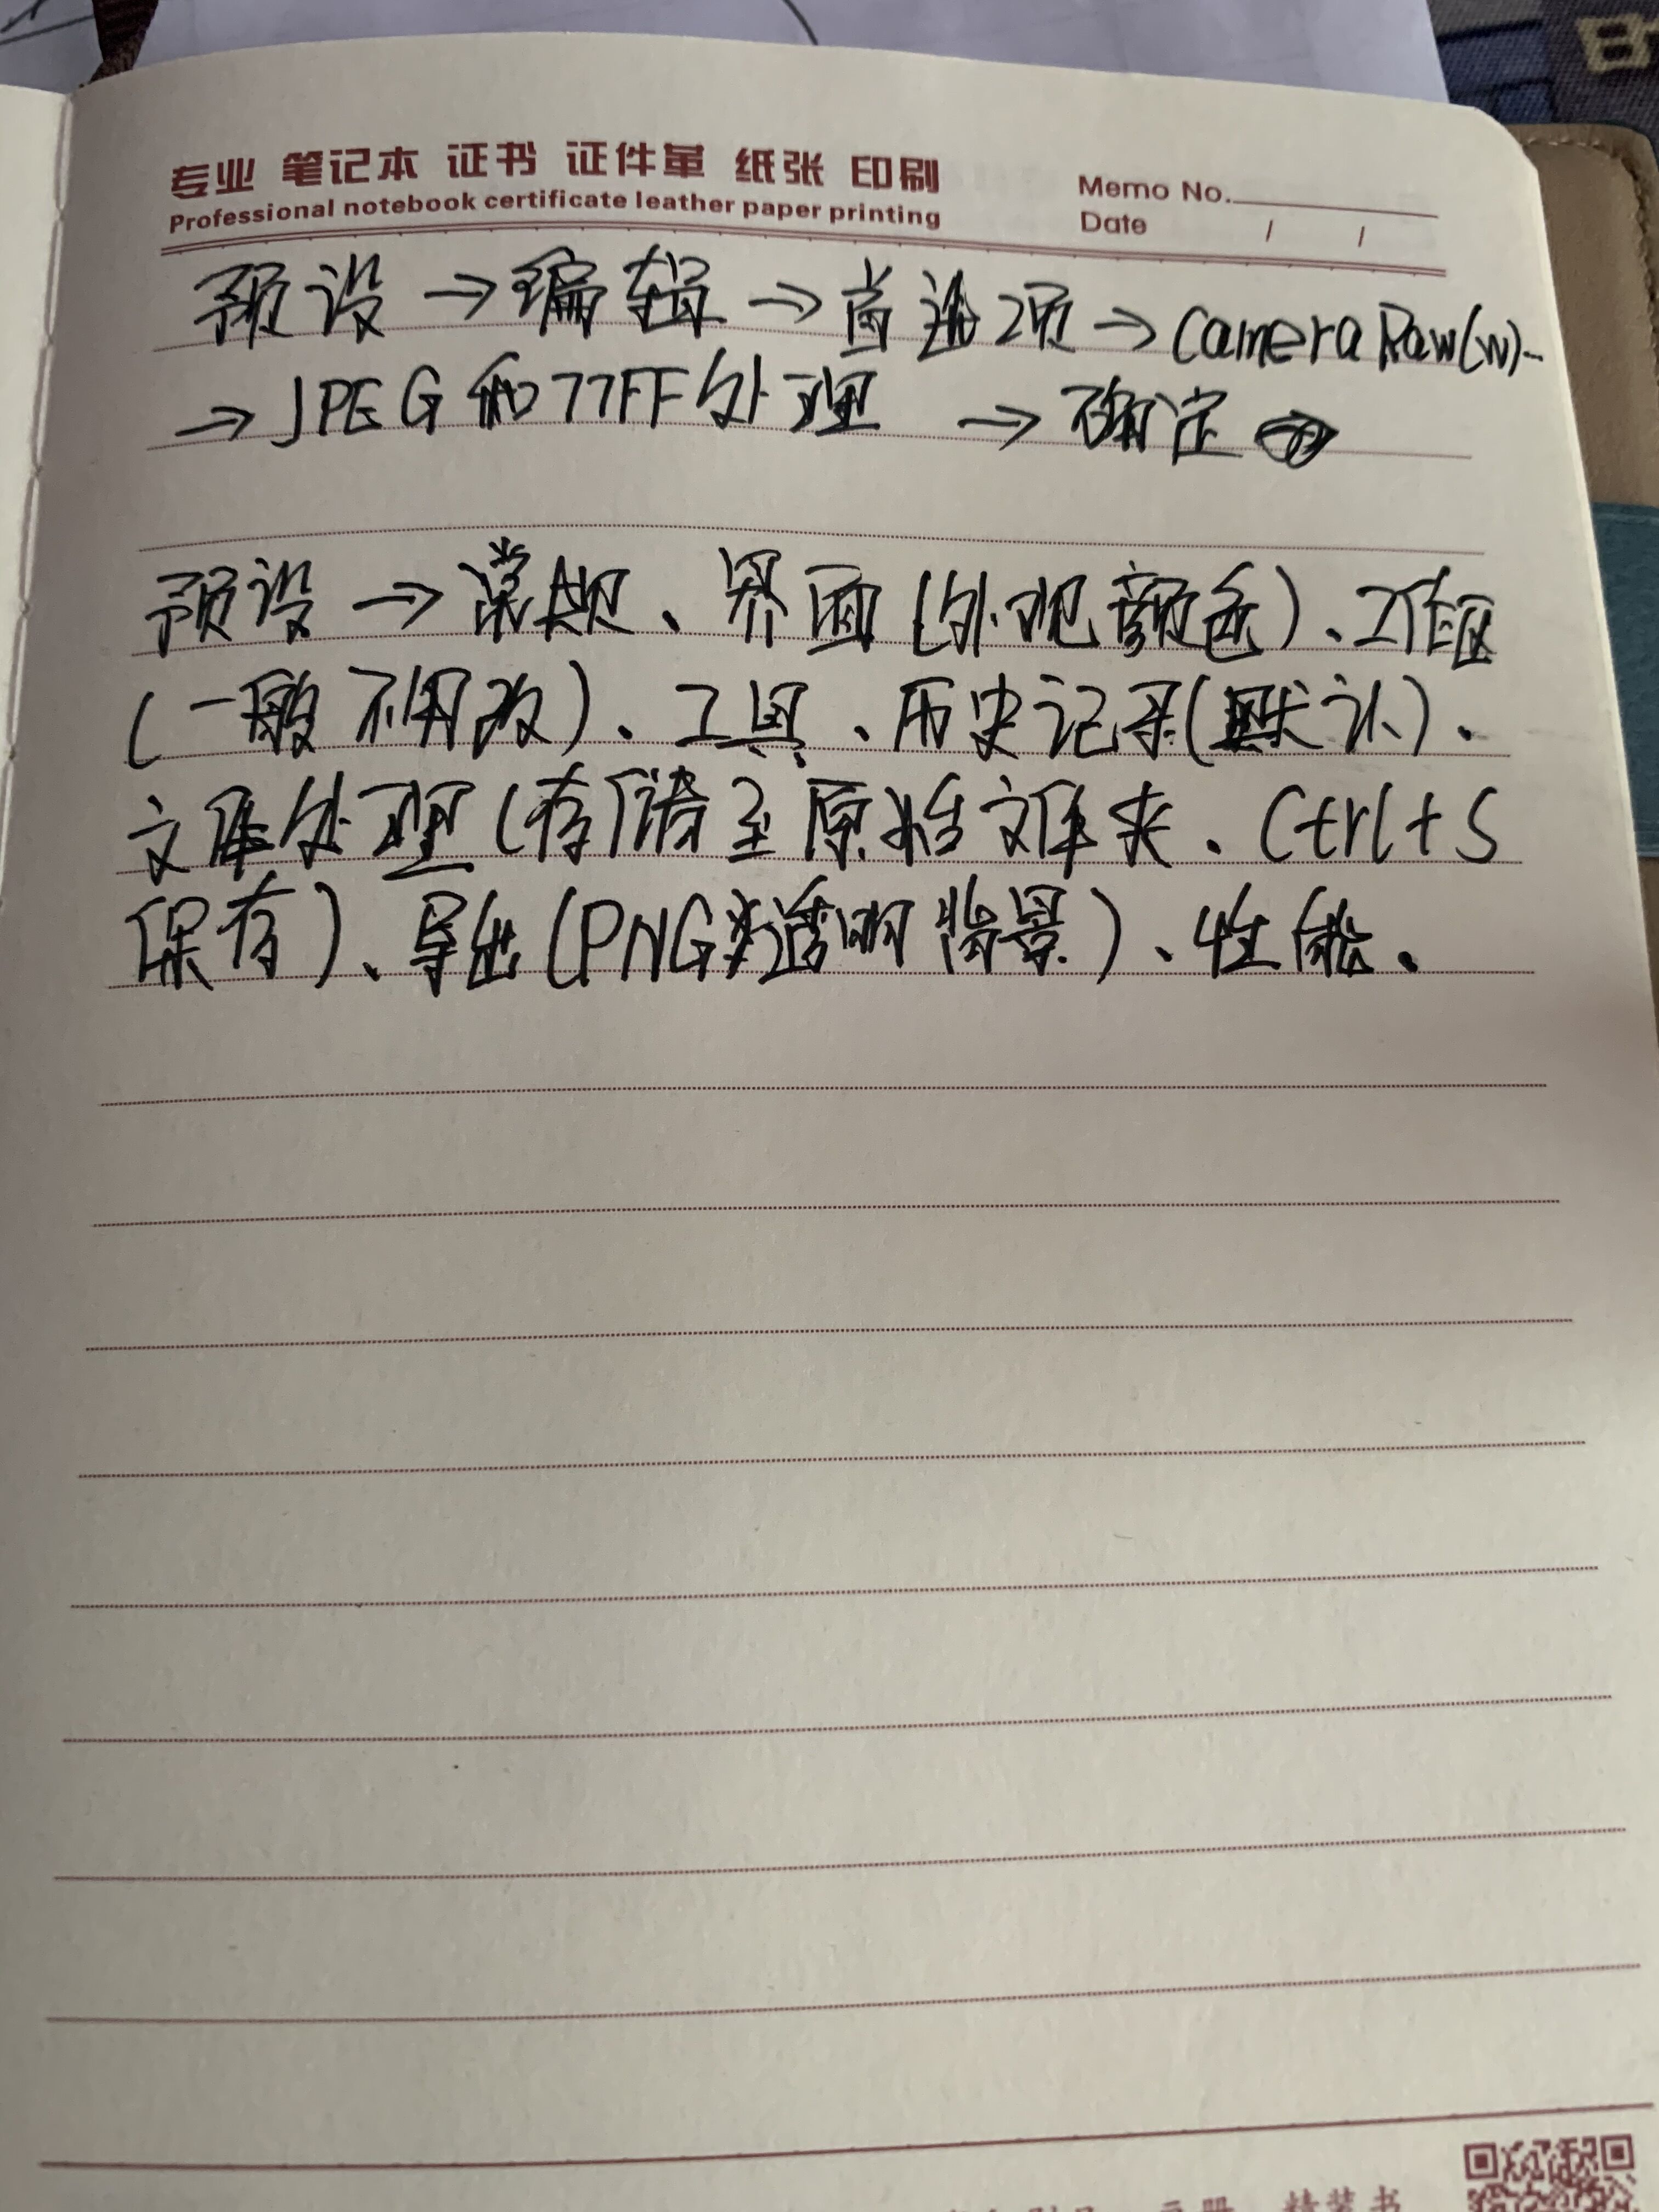 专业 笔记本 证书 证件革 纸张 印刷
Professional notebook certificate leather paper printing
Memo No.
Date / /
预设→编辑→首选项→Camera Raw(W)...
→JPEG和TIFF处理 →确定
预设→常规、界面(外观颜色)、工作区
(一般不用改)、工具、历史记录(默认)、
文件处理(存储至原始文件夹、Ctrl+S
保存)、导出(PNG 透明背景)、性能、
精装书